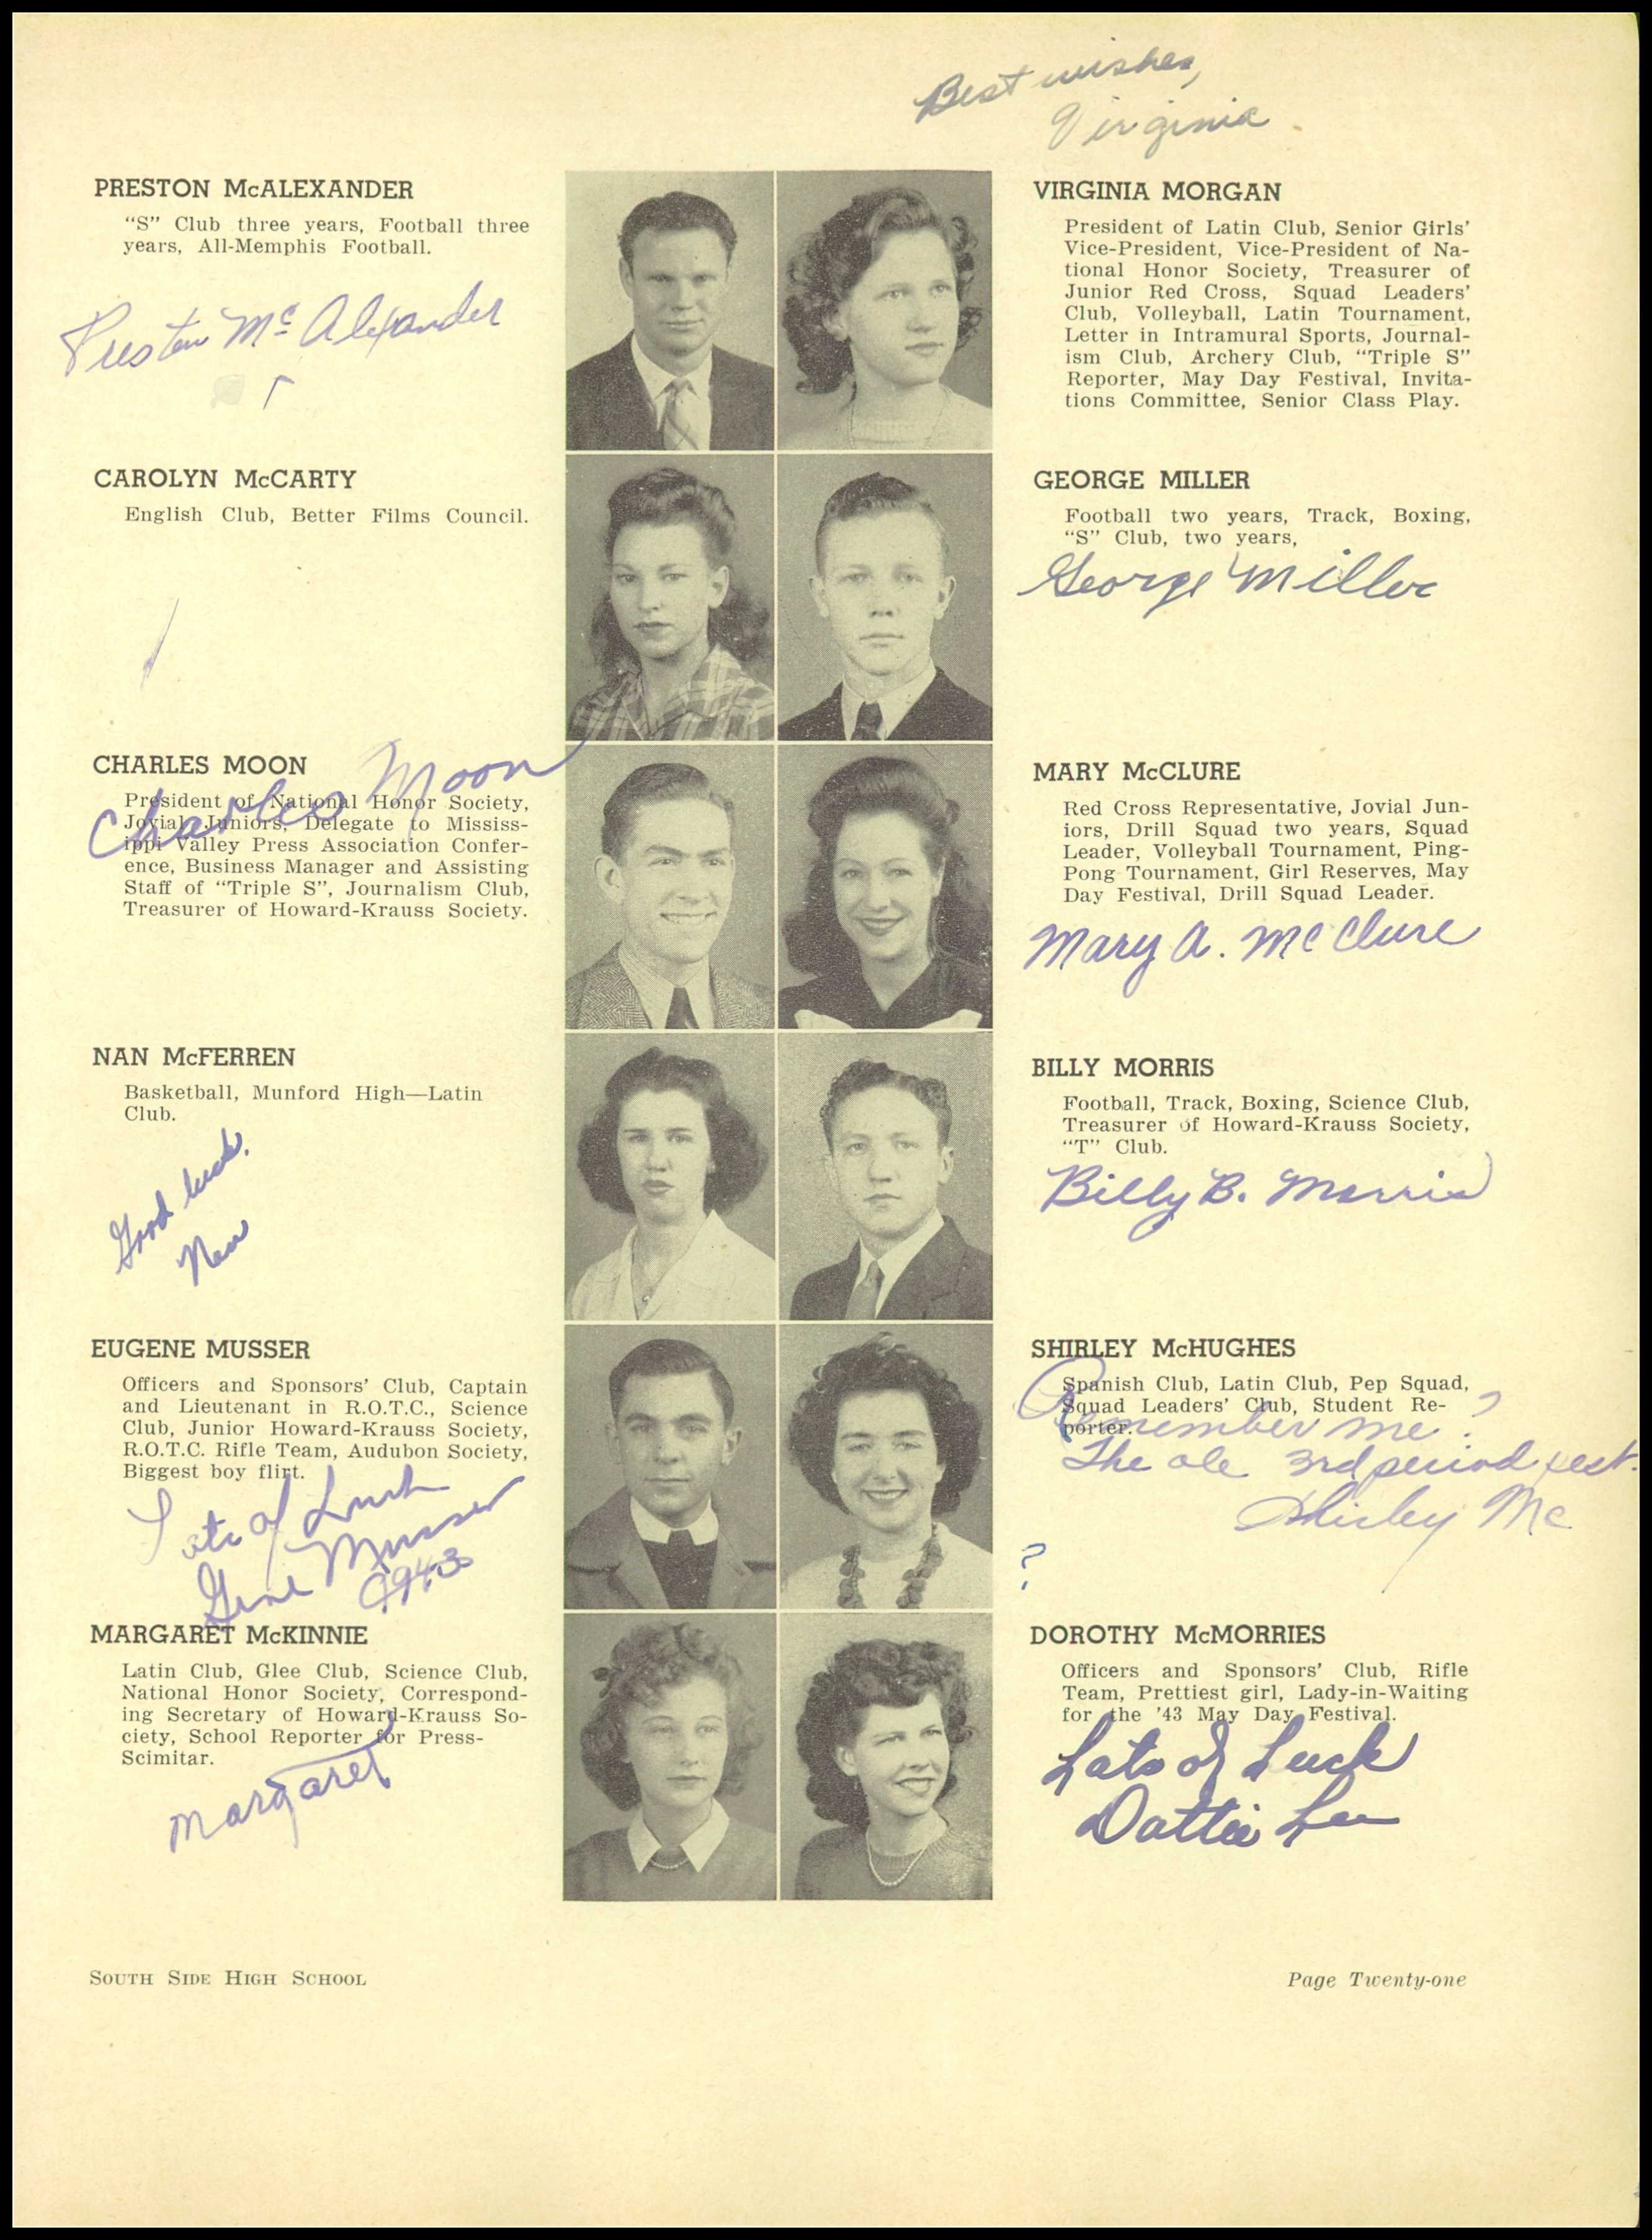 Best wishes,
Virginia
PRESTON McALEXANDER
"S" Club three years, Football three
years, All-Memphis Football.
Preston Mc Alexander
CAROLYN McCARTY
English Club, Better Films Council.
CHARLES MOON
Charles Moon
President of National Honor Society,
Jovial Juniors, Delegate to Mississ-
ippi Valley Press Association Confer-
ence, Business Manager and Assisting
Staff of "Triple S", Journalism Club,
Treasurer of Howard-Krauss Society.
NAN McFERREN
Basketball, Munford High—Latin
Club.
Good luck,
Nan
EUGENE MUSSER
Officers and Sponsors' Club, Captain
and Lieutenant in R.O.T.C., Science
Club, Junior Howard-Krauss Society,
R.O.T.C. Rifle Team, Audubon Society,
Biggest boy flirt.
Lots of Luck
Gene Musser
1943
MARGARET McKINNIE
Latin Club, Glee Club, Science Club,
National Honor Society, Correspond-
ing Secretary of Howard-Krauss So-
ciety, School Reporter for Press-
Scimitar.
Margaret
VIRGINIA MORGAN
President of Latin Club, Senior Girls'
Vice-President, Vice-President of Na-
tional Honor Society, Treasurer of
Junior Red Cross, Squad Leaders'
Club, Volleyball, Latin Tournament,
Letter in Intramural Sports, Journal-
ism Club, Archery Club, "Triple S"
Reporter, May Day Festival, Invita-
tions Committee, Senior Class Play.
GEORGE MILLER
Football two years, Track, Boxing,
"S" Club, two years,
George Miller
MARY McCLURE
Red Cross Representative, Jovial Jun-
iors, Drill Squad two years, Squad
Leader, Volleyball Tournament, Ping-
Pong Tournament, Girl Reserves, May
Day Festival, Drill Squad Leader.
Mary A. McClure
BILLY MORRIS
Football, Track, Boxing, Science Club,
Treasurer of Howard-Krauss Society,
"T" Club.
Billy B. Morris
SHIRLEY McHUGHES
Spanish Club, Latin Club, Pep Squad,
Squad Leaders' Club, Student Re-
porter.
Remember me?
The ole 3rd period pest.
Shirley Mc
?
DOROTHY McMORRIES
Officers and Sponsors' Club, Rifle
Team, Prettiest girl, Lady-in-Waiting
for the '43 May Day Festival.
Lots of Luck
Dottie Lee
SOUTH SIDE HIGH SCHOOL
Page Twenty-one